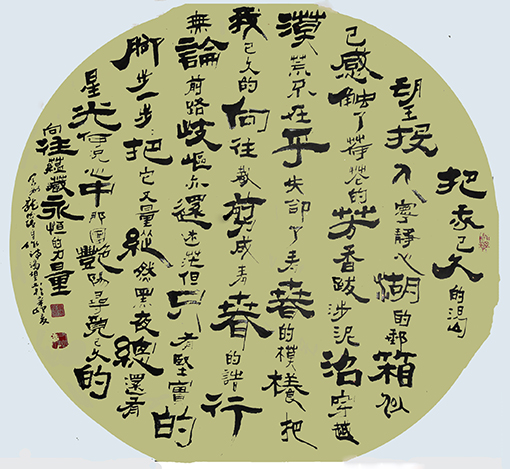 把我已久的渴
望投入寧靜心湖的郵箱似
已感触了荷花的芳香跋涉泥沼穿越
漠荒不在乎失卻了青春的模樣把
我已久的向往裁剪成青春的詩行
無論前路歧嶇還迷茫但只有堅實的
腳步一步把它丈量縱然黑夜總還有
星光何見心中那尋覓已久的
向往蘊藏永恒的力量